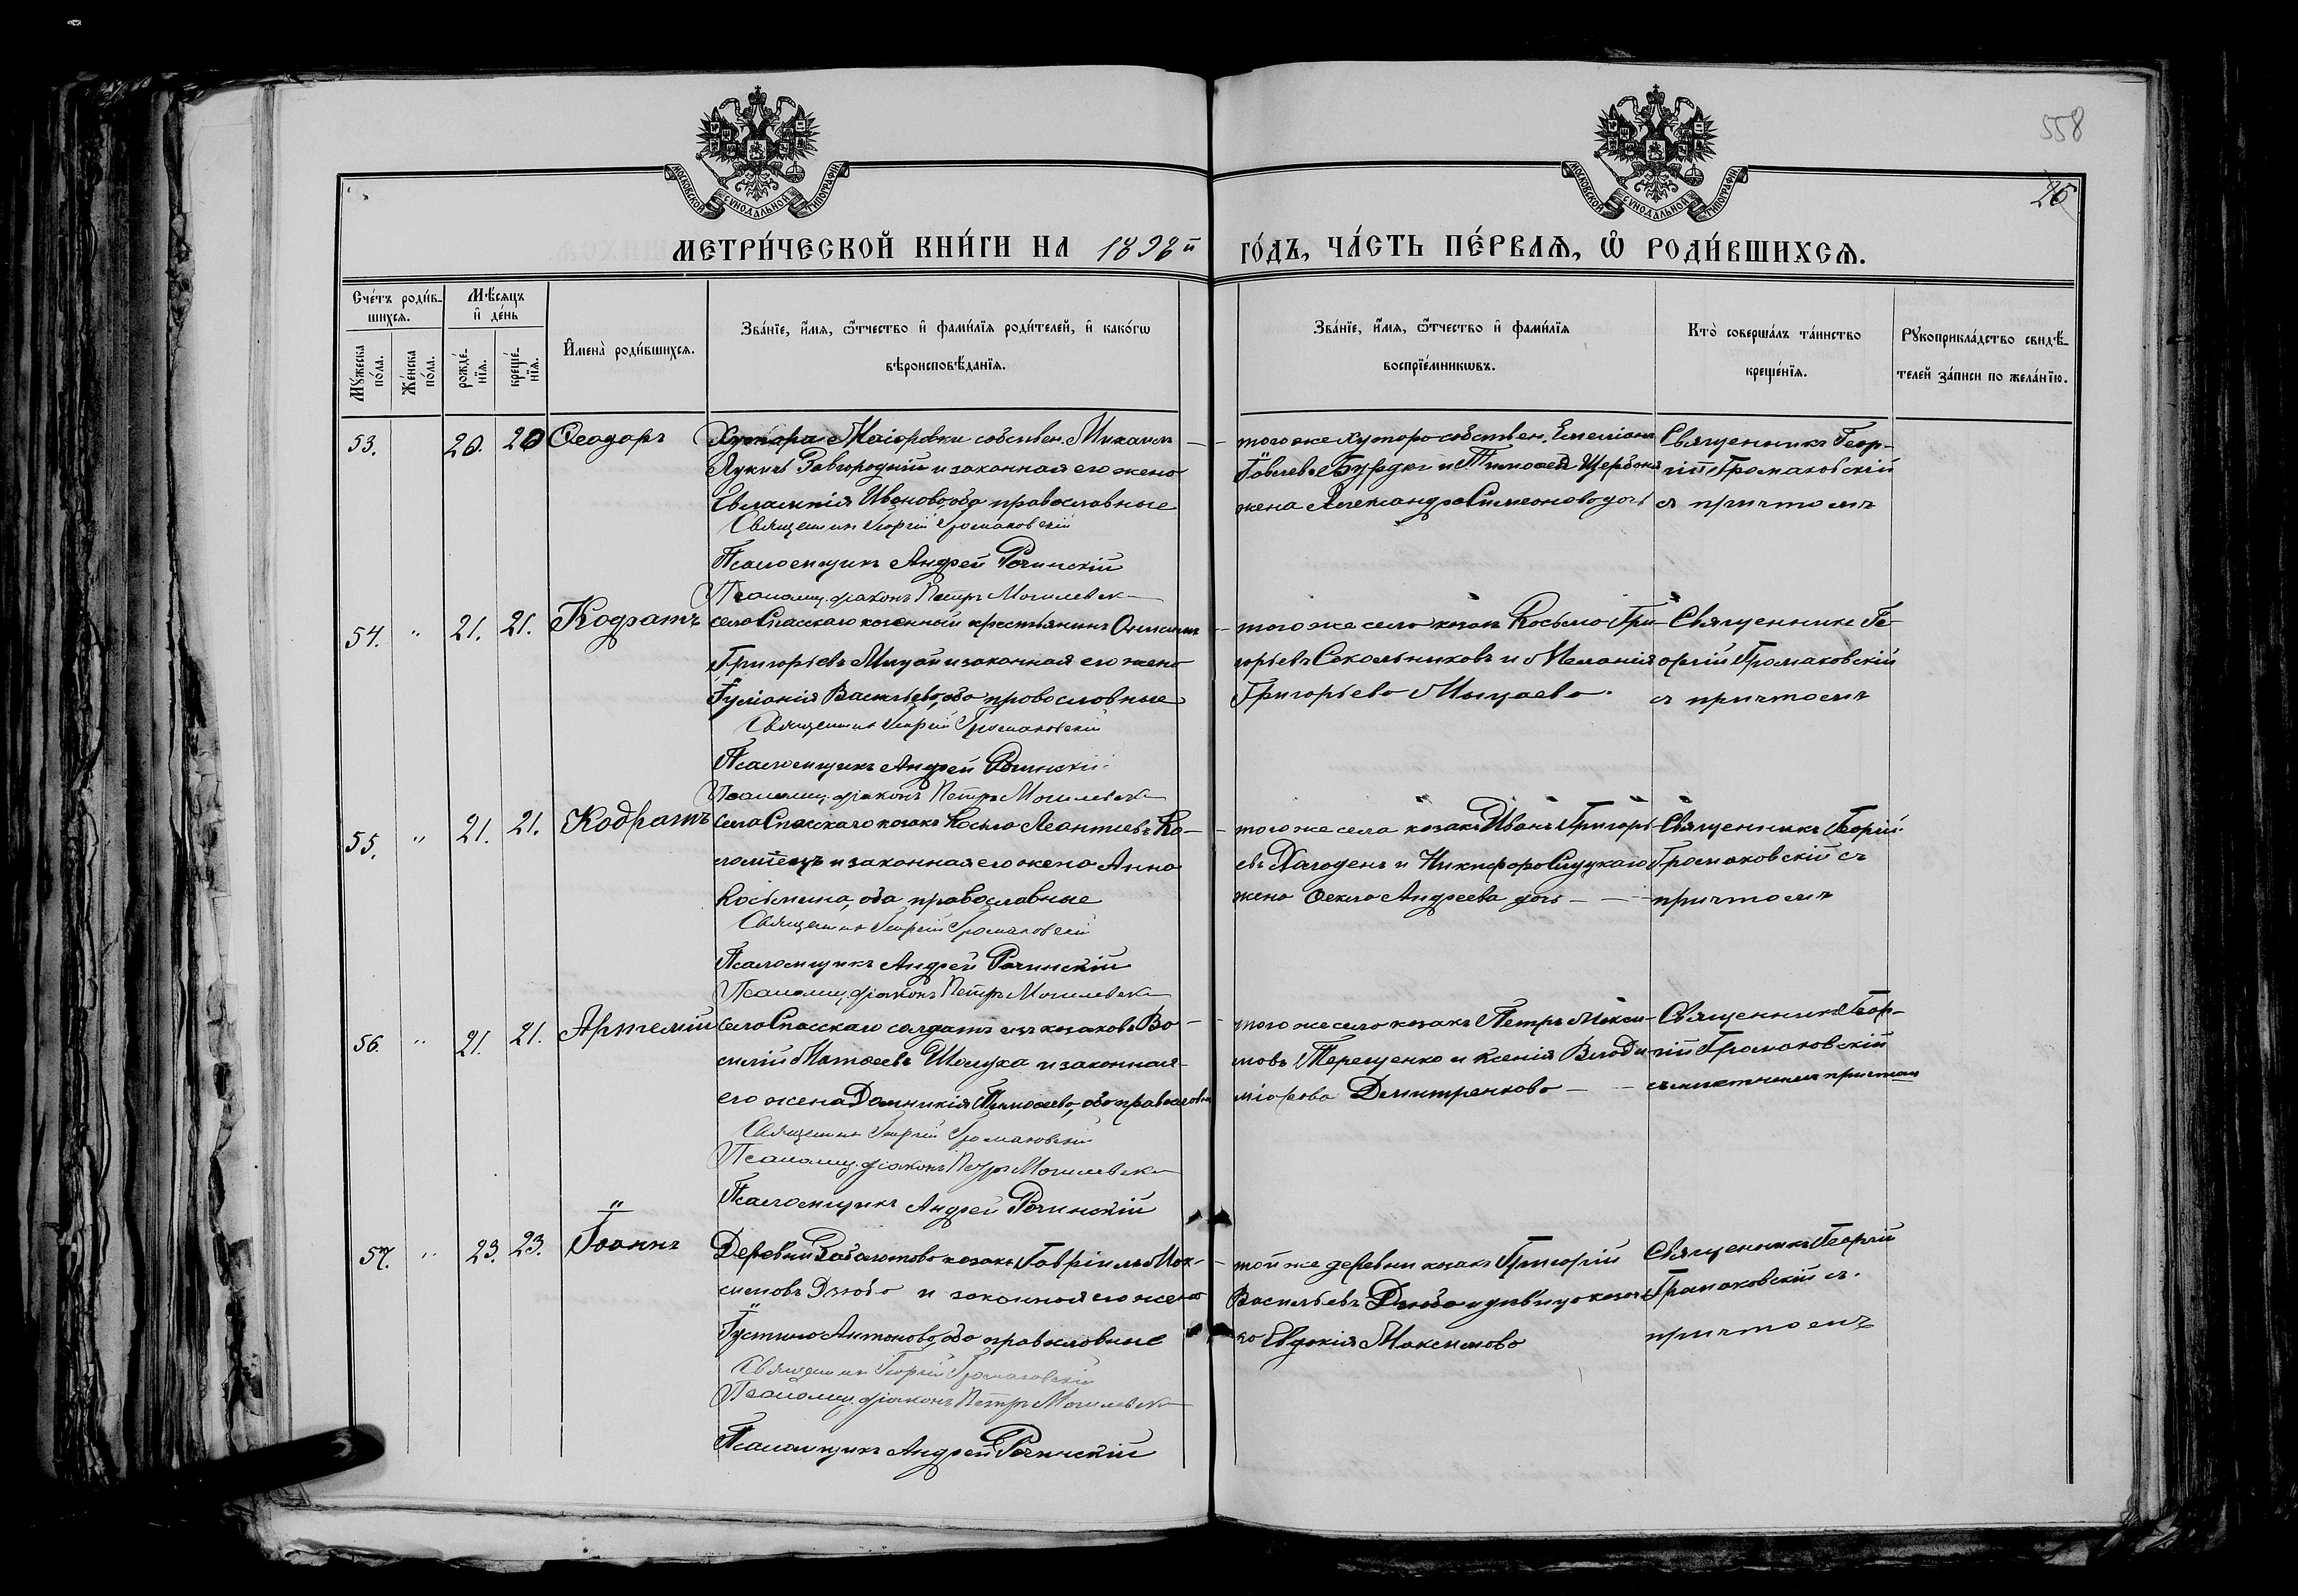 558
26
МОСКОВСКОЙ СѴНОДАЛЬНОЙ ТИПОГРАФІИ
МОСКОВСКОЙ СѴНОДАЛЬНОЙ ТИПОГРАФІИ
МЕТРИ́ЧЕСКОЙ КНИ́ГИ НА 1898й ГО́ДЪ, ЧА́СТЬ ПЕ́РВАѦ, Ѡ҆ РОДИ́ВШИХСѦ.
Сче́тъ роди́в-
шихсѧ.
Мѣ́сѧцъ
и҆ де́нь
Мꙋ́жеска по́ла.
Же́нска по́ла.
рожде́-
нїѧ.
креще́-
нїѧ.
И҆мена̀ роди́вшихсѧ.
Зва́нїе, и҆́мѧ, ѻ҆́тчество и҆ фами́лїѧ роди́телей, и҆ како́гѡ
вѣроисповѣ́данїѧ.
Зва́нїе, и҆́мѧ, ѻ҆́тчество и҆ фами́лїѧ
воспрїе́мникѡвъ.
Кто̀ соверша́лъ та́инство
креще́нїѧ.
Рꙋкоприкла́дство свидѣ́-
телей за́писи по жела́нїю.
53. 20. 20 Ѳеодоръ
Хутора Маіоровки собствен. Михаилъ
Лукичъ Завгородній и законная его жена
Евлампія Иванова, оба православные
Священникъ Георгій Громаковскій
Псаломщикъ Андрей Рочинскій
Псаломщ. діаконъ Петръ Могилевск
того же хутора собствен. Емеліанъ
жена Александра Симеонова дочь
Священникъ Геор-
гій Громаковскій
съ причтомъ
54. " 21. 21. Кодратъ
села Спасскаго казенный крестьянинъ
Григорьевъ Мицай и законная его жена
Іуліанія Васильева, оба православные
Священникъ Георгій Громаковскій
Псаломщикъ Андрей Рочинскій
Псаломщ. діаконъ Петръ Могилевск
того же села козакъ Косьма Гри-
горьевъ Сокольниковъ и Меланія
Григорьева Мицаева.
Священникъ Ге-
оргій Громаковскій
съ причтомъ
55. " 21. 21. Кодратъ
Села Спасскаго козакъ Косьма Леонтіевъ Ко-
ломіецъ и законная его жена Анна
Косьмина, оба православные
Священникъ Георгій Громаковскій
Псаломщикъ Андрей Рочинскій
Псаломщ. діаконъ Петръ Могилевск
того же села козакъ Иванъ Григорь-
евъ и Никифора Слуцкаго
жена Ѳекла Андреева дочь
Священникъ Георгій
Громаковскій съ
причтомъ
56. " 21. 21. Артемій
Села Спасскаго солдатъ изъ козаковъ Ва-
силій Матѳеевъ и законная
его жена Домникія Тимоѳеева, оба православн
Священникъ Георгій Громаковскій
Псаломщ. діаконъ Петръ Могилевск
Псаломщикъ Андрей Рочинскій
того же села козакъ Петръ Макси-
мовъ Терещенко и Ксенія Влади-
мірова Демитренкова
Священникъ Геор-
гій Громаковскій
съ причтом
57. " 23. 23. Іоаннъ
Деревни козакъ Гавріилъ Мак-
симовъ Дзюба и законная его жена
Іустина Антонова, оба православные
Священникъ Георгій Громаковскій
Псаломщ. діаконъ Петръ Могилевск
Псаломщикъ Андрей Рочинскій
той же деревни козакъ Григорій
Васильевъ Дзюба и
Евдокія Максимова
Священникъ Георгій
Громаковскій съ
причтомъ